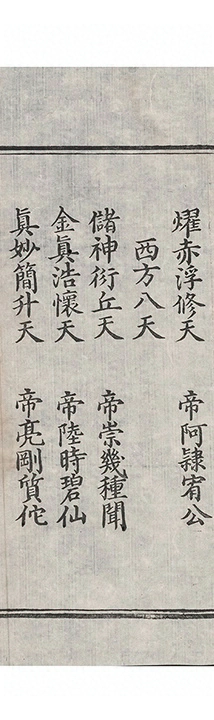 燿赤浮修天　帝阿隷宥公
西方八天
儲神衍丘天　帝崇幾種聞
金眞浩懷天　帝陸時碧仙
眞妙簡升天　帝亮剛質佗